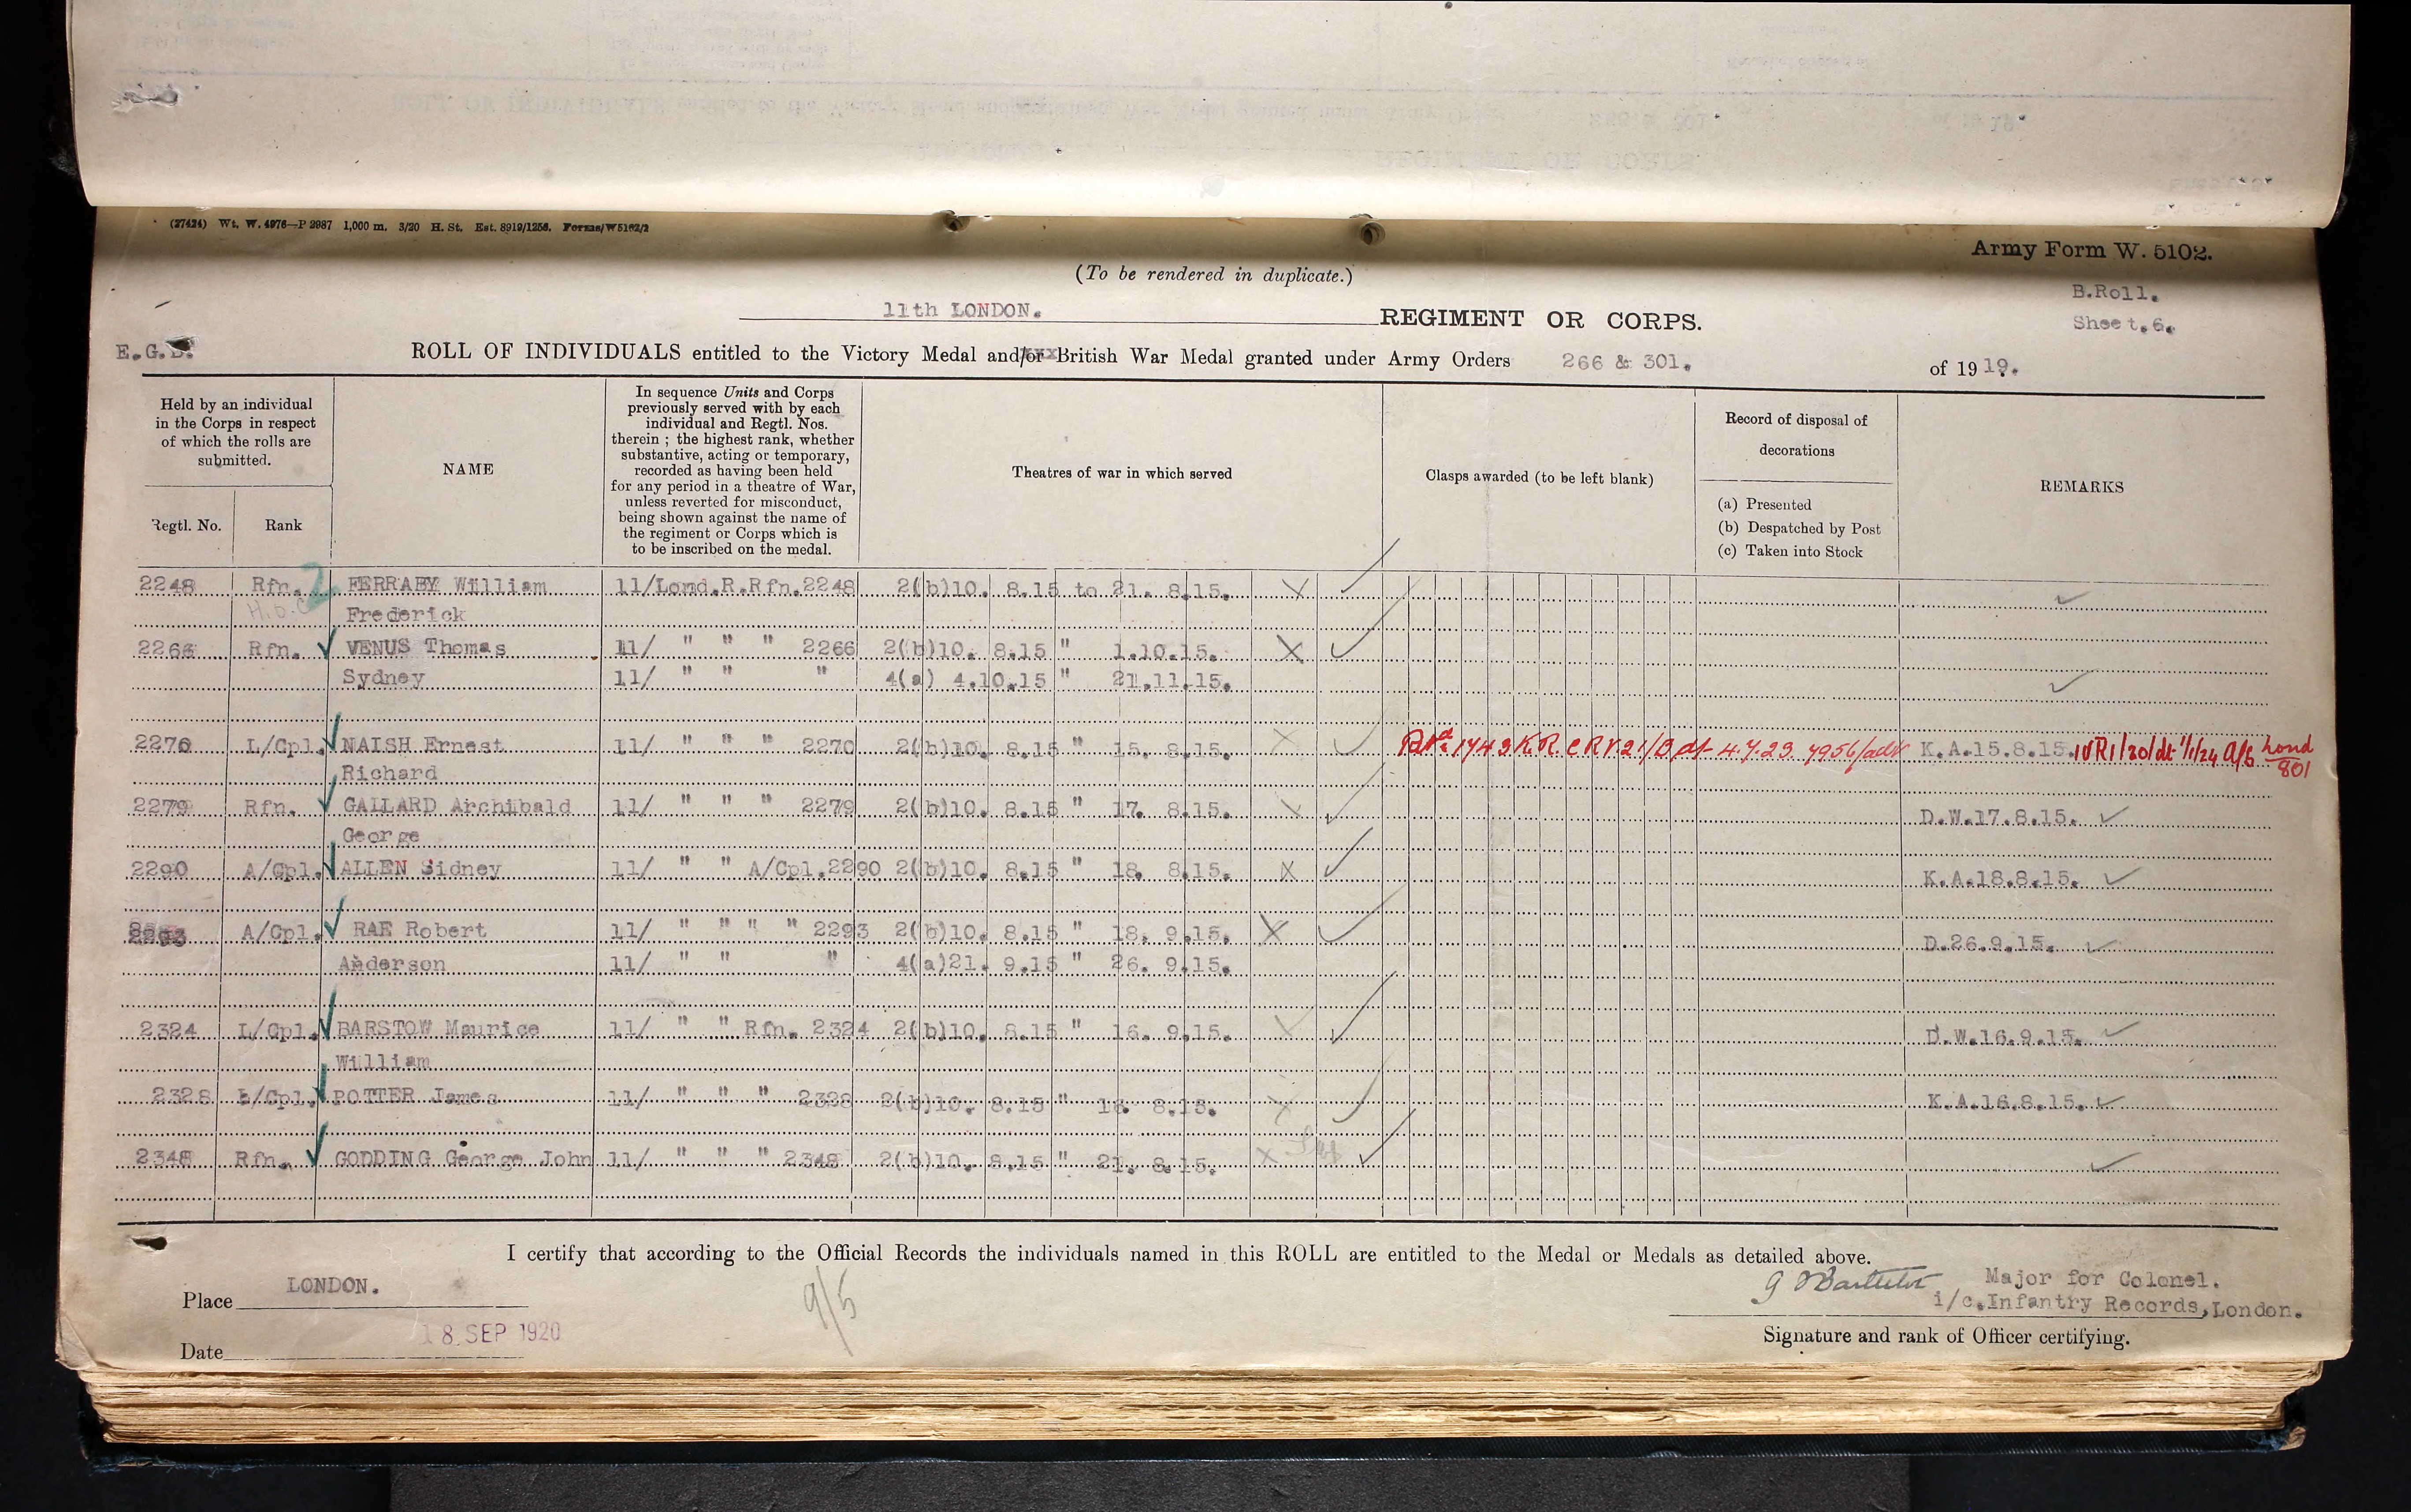 (27424) Wt. W. 4976—P 2987 1,000 m. 3/20 H. St. Est. 8919/1256. Forms/W5102/2
Army Form W. 5102.
(To be rendered in duplicate.)
B.Roll.
11th LONDON. REGIMENT OR CORPS.
Sheet.6.
E.G.
ROLL OF INDIVIDUALS entitled to the Victory Medal and/or British War Medal granted under Army Orders 266 & 301. of 1919.
Held by an individual in the Corps in respect of which the rolls are submitted.
Regtl. No.
Rank
NAME
In sequence Units and Corps
previously served with by each
individual and Regtl. Nos.
therein ; the highest rank, whether
substantive, acting or temporary,
recorded as having been held
for any period in a theatre of War,
unless reverted for misconduct,
being shown against the name of
the regiment or Corps which is
to be inscribed on the medal.
Theatres of war in which served
Clasps awarded (to be left blank)
Record of disposal of
decorations
(a) Presented
(b) Despatched by Post
(c) Taken into Stock
REMARKS
2248 Rfn. 2 FERRABY William 11/Lond.R.Rfn.2248 2(b)10. 8.15 to 21. 8.15.
Frederick
2266 Rfn. VENUS Thomas 11/ " " " 2266 2(b)10. 8.15 " 1.10.15.
Sydney 11/ " " " 4(a) 4.10.15 " 21.11.15.
2270 L/Cpl. NAISH Ernest 11/ " " " 2270 2(b)10. 8.15 " 15. 8.15. 1743 K.R. 4.7.23 7956/adt K.A.15.8.15. IVR1/20/dt 1/1/24 A/6 Lond 801
Richard
2279 Rfn. GALLARD Archibald 11/ " " " 2279 2(b)10. 8.15 " 17. 8.15. D.W.17.8.15.
George
2290 A/Cpl. ALLEN Sidney 11/ " " A/Cpl.2290 2(b)10. 8.15 " 18. 8.15. K.A.18.8.15.
2293 A/Cpl. RAE Robert 11/ " " " " 2293 2(b)10. 8.15 " 18. 9.15. D.26.9.15.
Anderson 11/ " " " 4(a)21. 9.15 " 26. 9.15.
2324 L/Cpl. BARSTOW Maurice 11/ " " Rfn. 2324 2(b)10. 8.15 " 16. 9.15. D.W.16.9.15.
William
2328 L/Cpl. POTTER James 11/ " " " 2328 2(b)10. 8.15 " 16. 8.15. K.A.16.8.15.
2348 Rfn. GODDING George John 11/ " " " 2348 2(b)10. 8.15 " 21. 8.15.
I certify that according to the Official Records the individuals named in this ROLL are entitled to the Medal or Medals as detailed above.
Place LONDON.
9/5
Major for Colonel.
i/c.Infantry Records, London.
Date 18 SEP 1920
Signature and rank of Officer certifying.